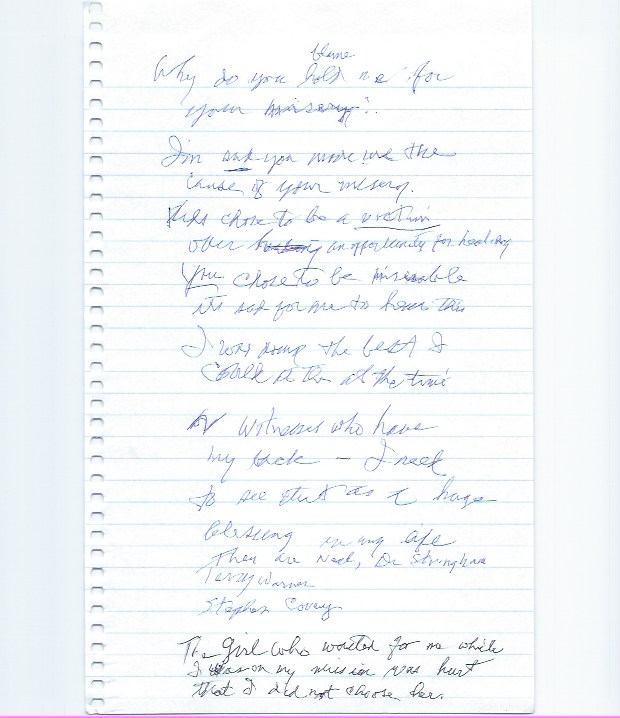 blame
Why do you hold me for
your misery?
I'm sad you made me the
cause of your misery.
chose to be a victim
over an opportunity for healing
You chose to be miserable
it's sad for me to hear this
I was doing the best I
could at the time
witnesses who have
my back – I need
to see that as a huge
blessing in my life
They are Neal, Dr Stringham
Terry Warner
Stephen Covey
The girl who waited for me while
I was on my mission was hurt
that I did not choose her.